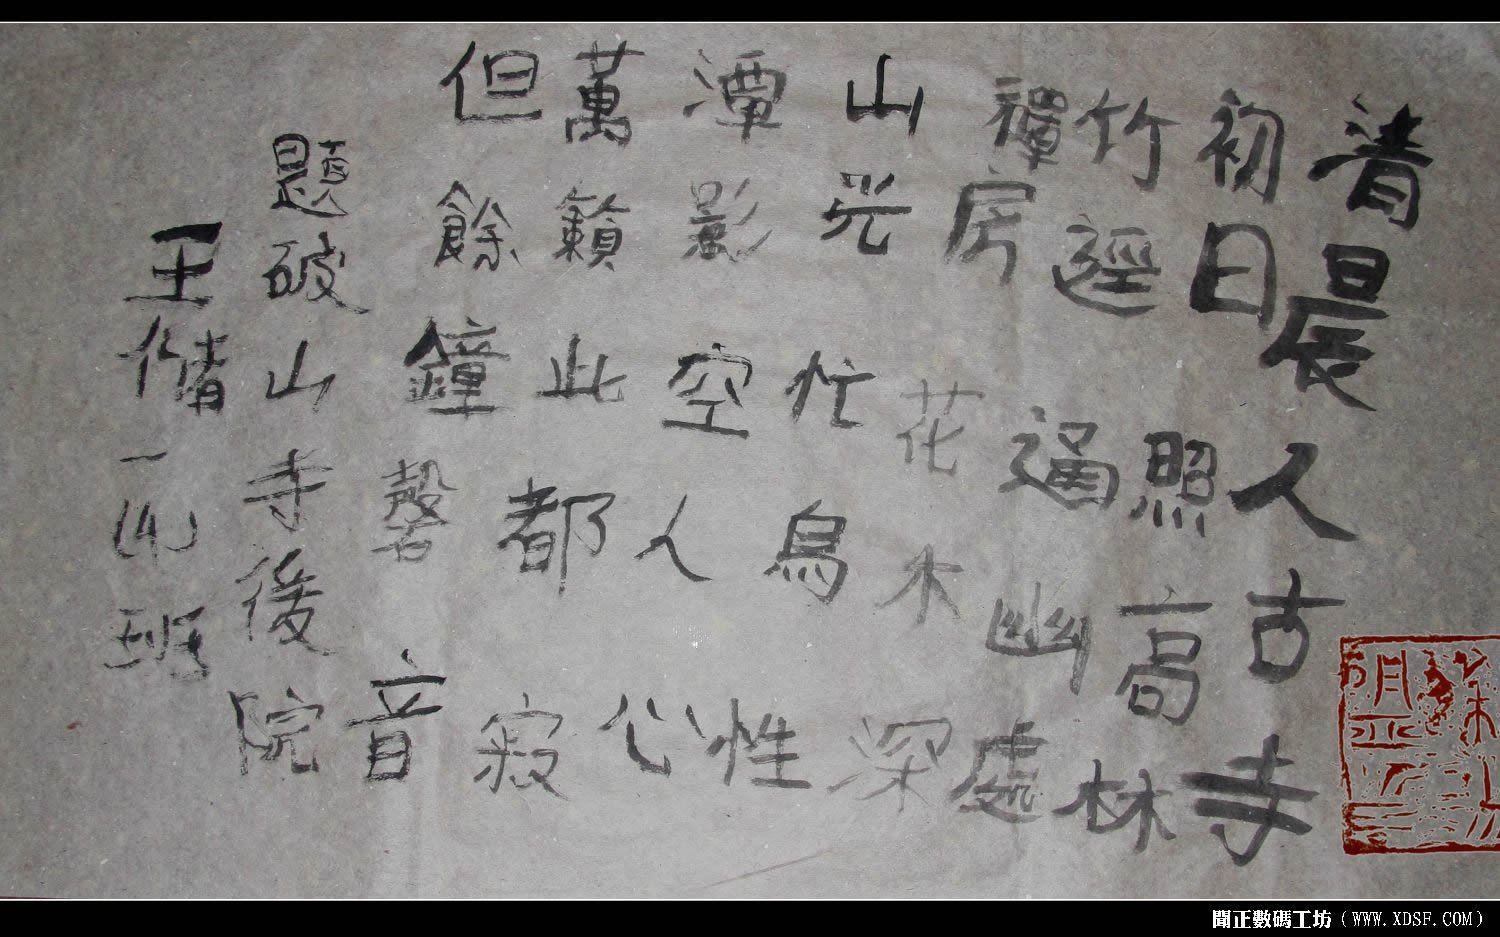 清晨人古寺
初日照高林
竹逕通幽處
禪房花木深
山光忙鳥性
潭影空人心
萬籟此都寂
但餘鐘磬音
題破山寺後院
王偕一(4)班
聞正數碼工坊（WWW.XDSF.COM）